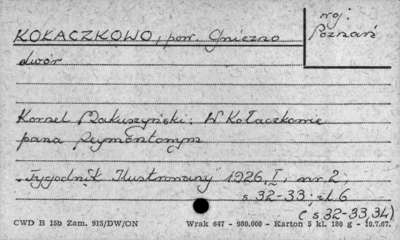 KOŁACZKOWO, pow. Gniezno
woj.
Poznań
dwór
Kornel Makuszyński: W Kołaczkowie
pana Reymontowym
"Tygodnik Ilustrowany" 1926, I, nr 2,
s 32-33: il. 6
(s 32-33, 34)
CWD B 15b Zam. 915/DW/ON Wrak 647 - 980.000 - Karton 5 kl. 180 g - 10.7.67.